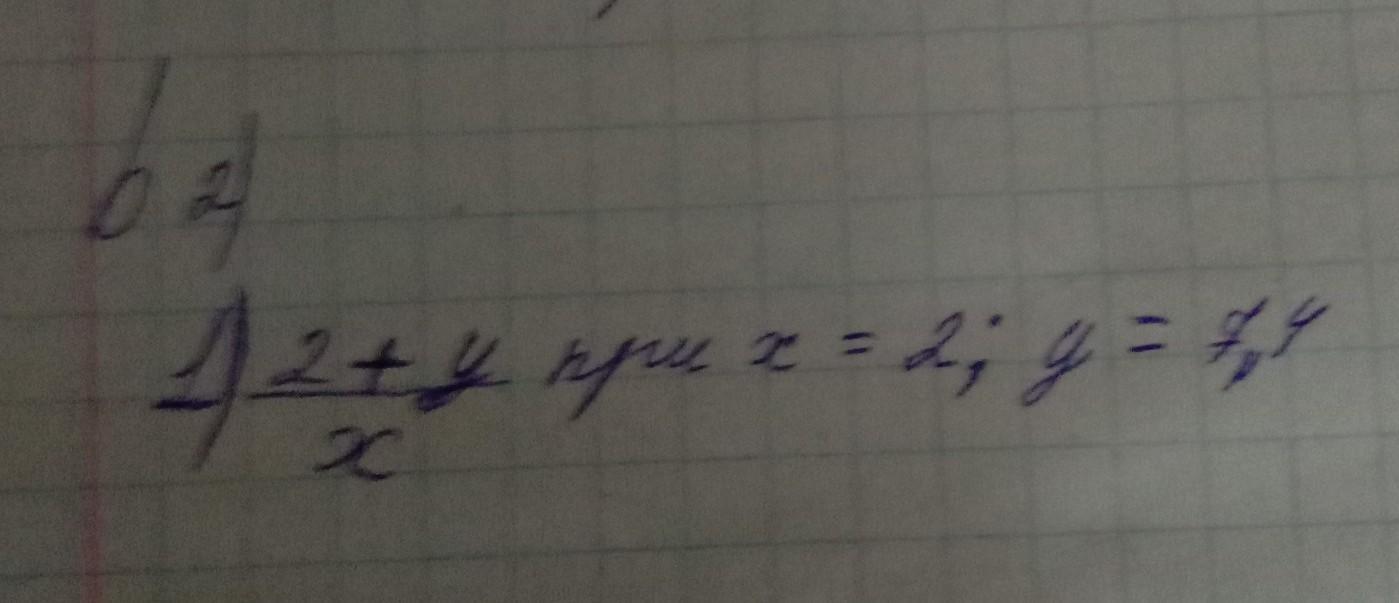 б 2)
1) 2 + y / x при x = 2; y = 7,4